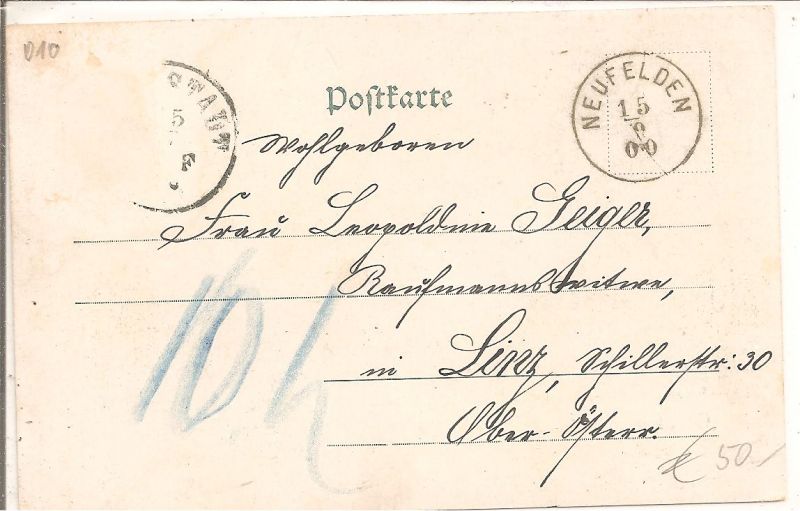 010
Postkarte
NEUFELDEN
15
00
Wohlgeboren
Frau Leopoldine Geiger,
Kaufmannswitwe,
in Linz, Schillerstr: 30
Ober-Österr.
10 h
50